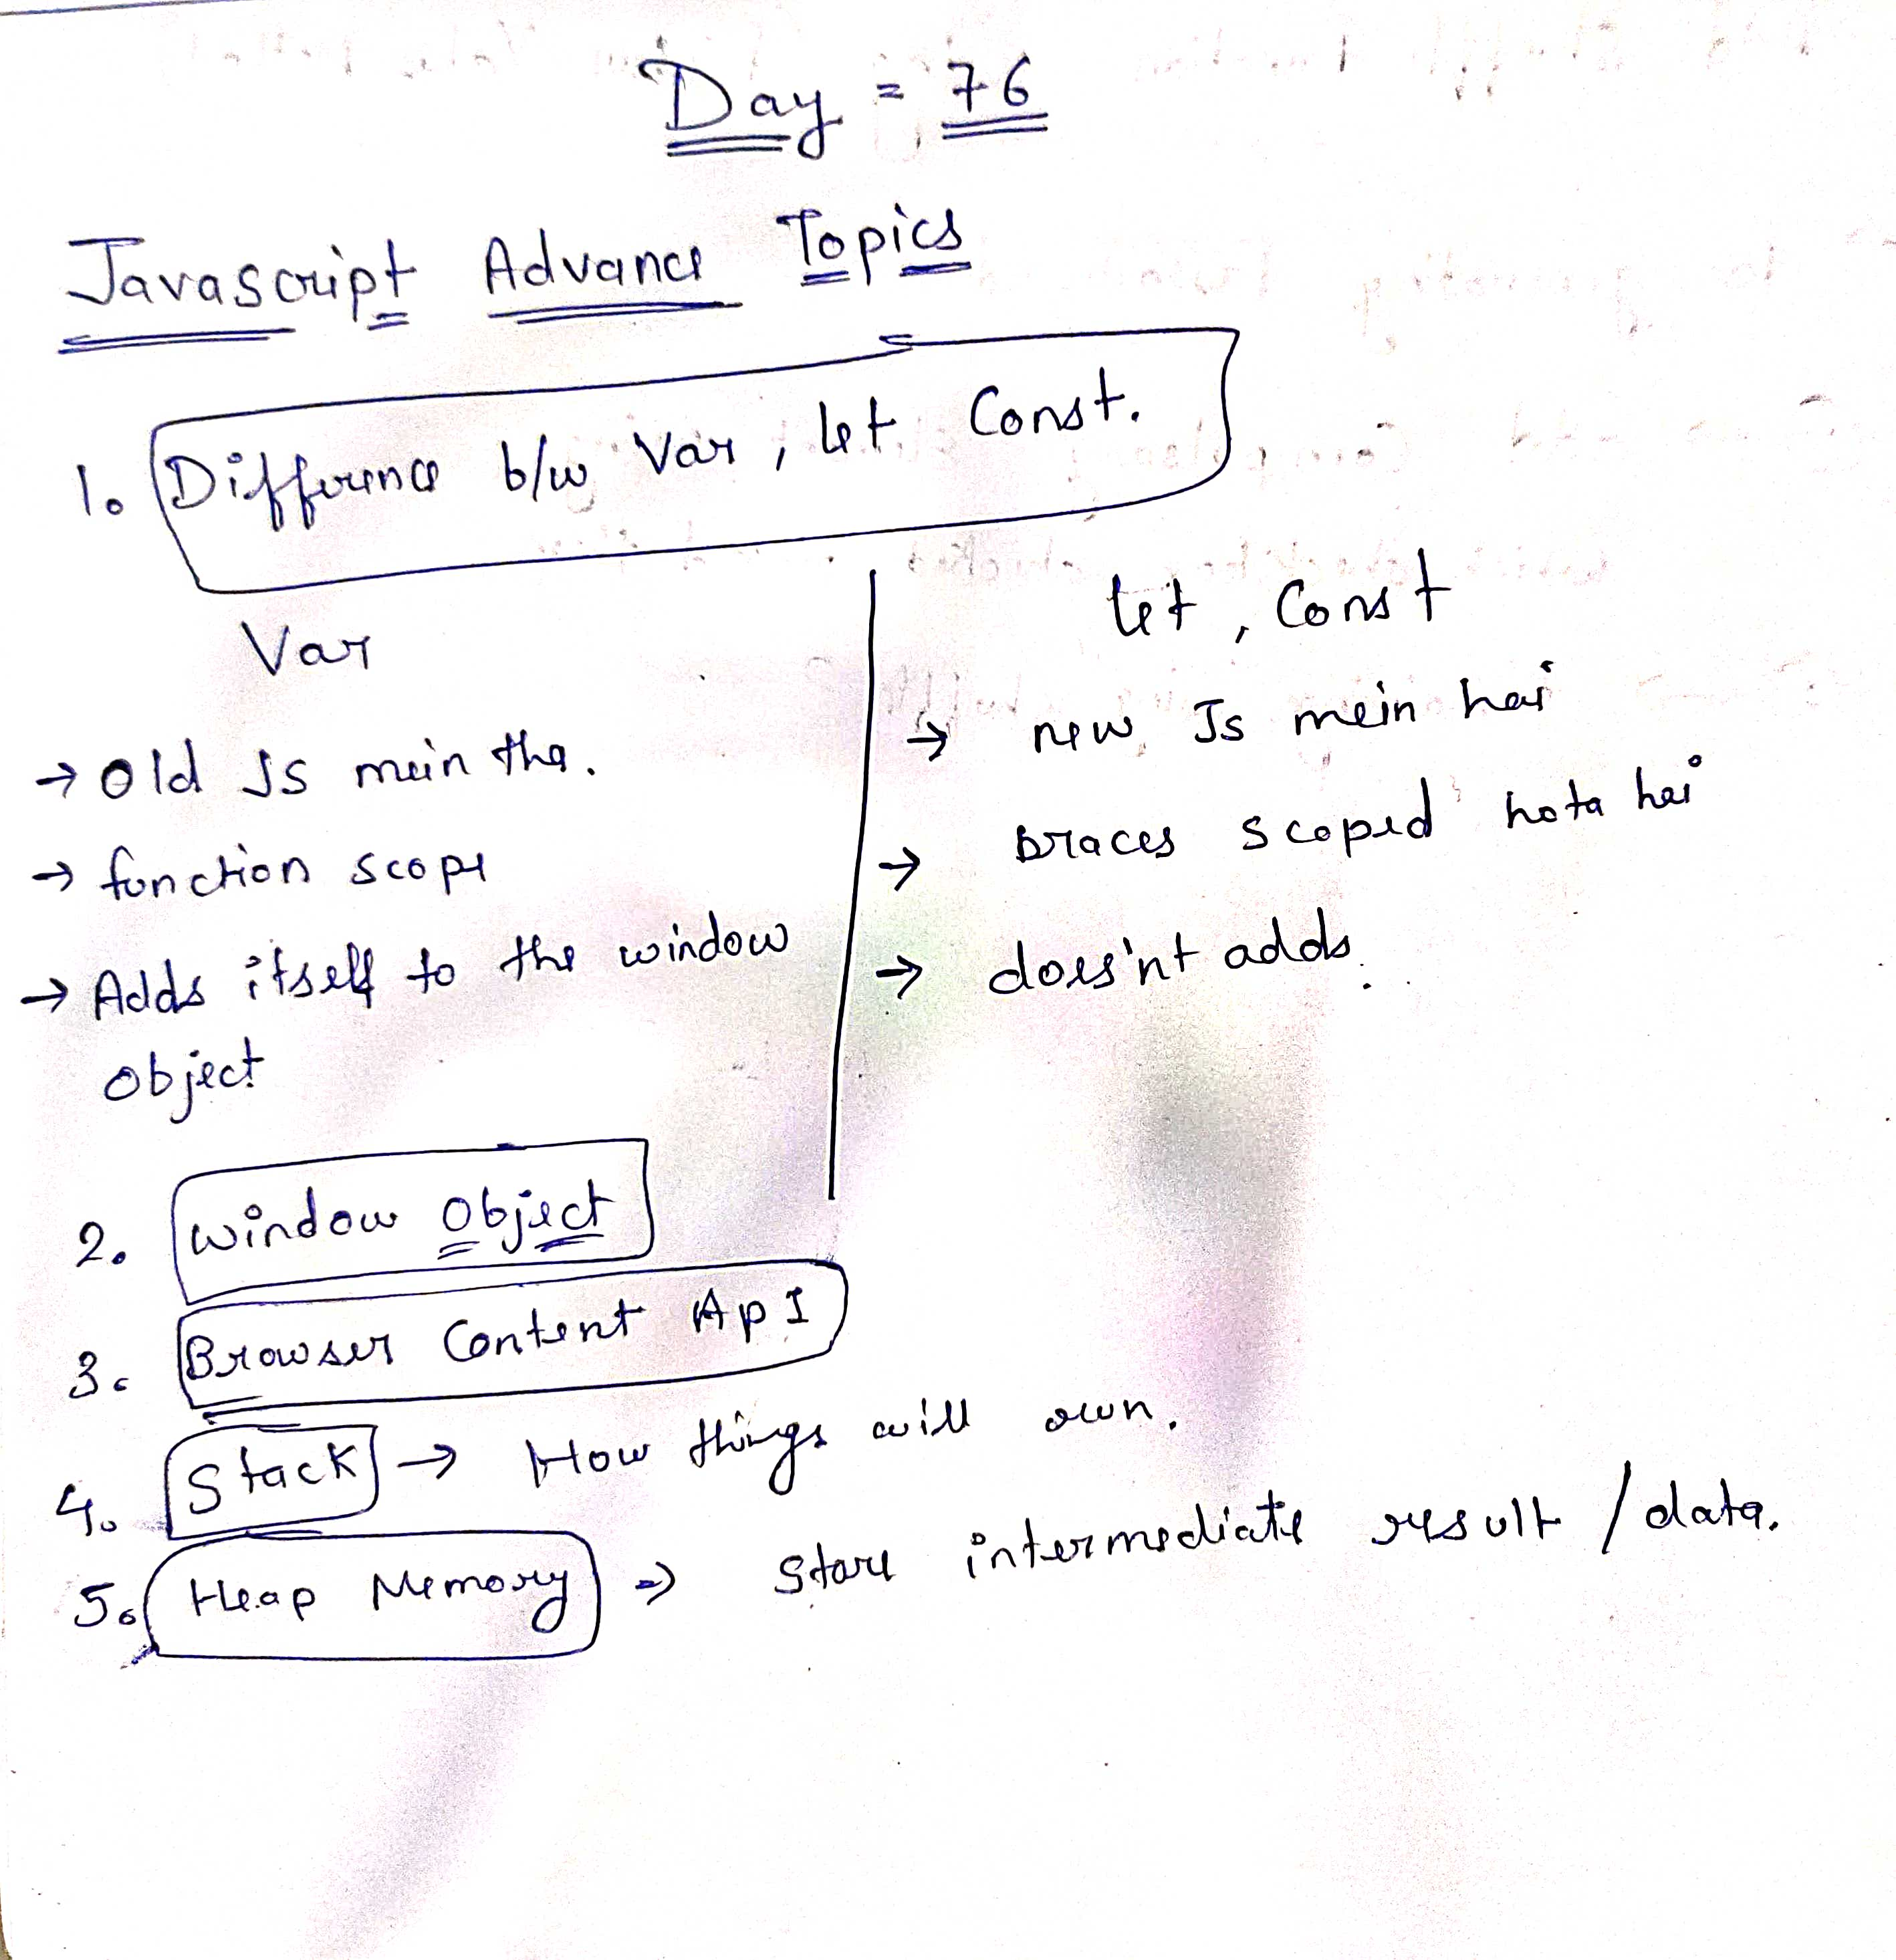 Day = 76
Javascript Advance Topics
1. Difference b/w Var, let Const.
Var
→ Old Js mein tha.
→ function scope
→ Adds itself to the window
object
let, Const
→ new Js mein hai
→ Braces scoped hota hai
→ does'nt adds.
2. window object
3. Browser Content ApI
4. Stack → How things will run.
5. Heap Memory ⇒ Store intermediate result / data.